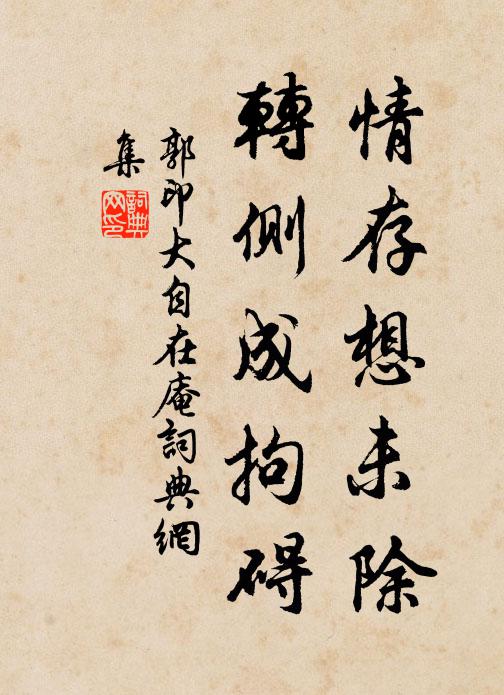 情存想未除
轉側成拘碍
郭印大自在庵詞典網
集
詞典網印